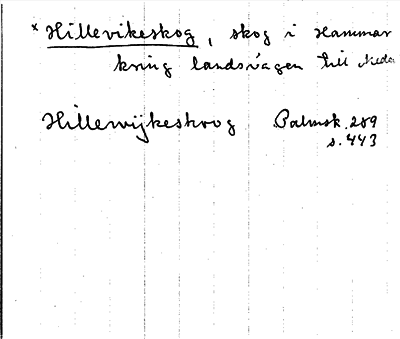 × Hillevikeskog, skog i Hammar
kring landsvägen till Neder
Hillewijkeskoog Palmsk. 289
s. 443